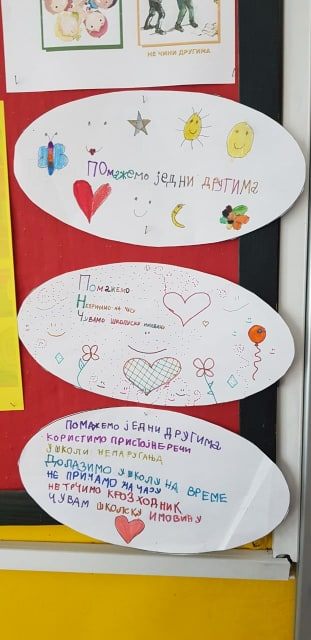 НЕ ЧИНИ ДРУГИМА
ПОмажемо једни другима
Помажемо
Непричамо на часу
Чувамо школску имовину
ПОМАЖЕМО ЈЕДНИ ДРУГИМА
КОРИСТИМО ПРИСТОЈНЕ РЕЧИ
У ШКОЛИ НЕМА РУГАЊА
ДОЛАЗИМО У ШКОЛУ НА ВРЕМЕ
НЕ ПРИЧАМО НА ЧАСУ
НЕ ТРЧИМО КРОЗ ХОДНИК
ЧУВАМ ШКОЛСКУ ИМОВИНУ